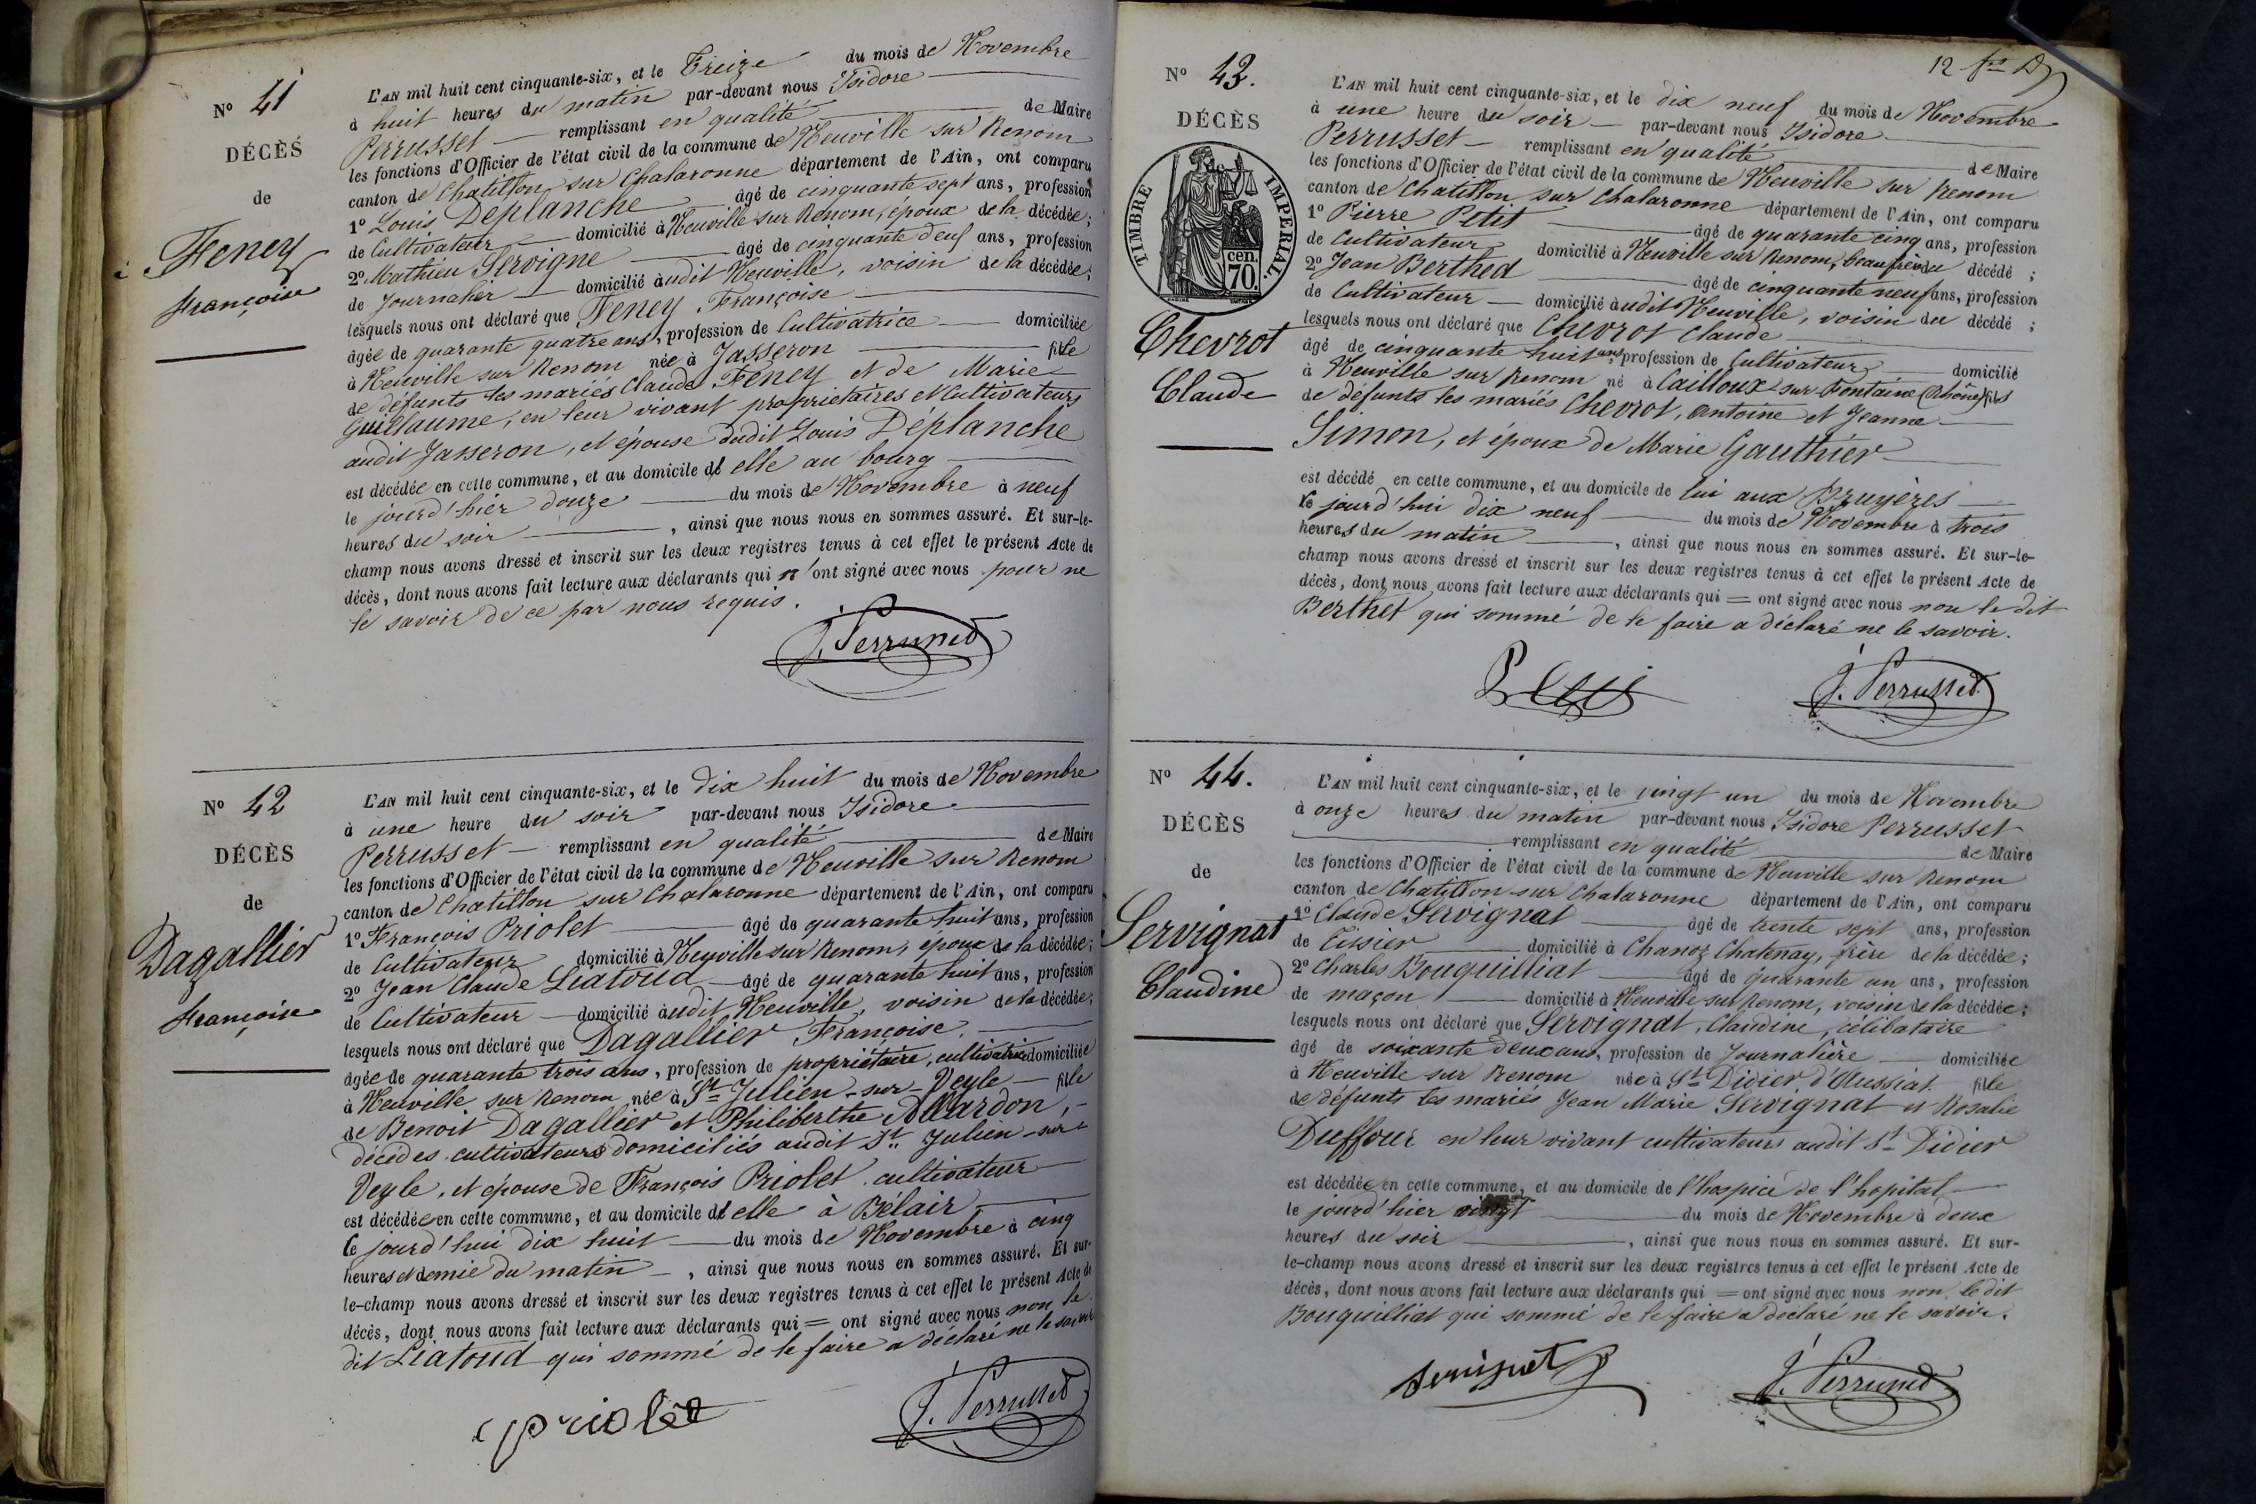 N° 41
DÉCÈS
de
Feney
françoise
L'AN mil huit cent cinquante-six, et le Treize du mois de Novembre
à huit heures du matin par-devant nous Isidore
Perrusset remplissant en qualité de Maire
les fonctions d'Officier de l'état civil de la commune de Neuville sur Renom
canton de Chatillon sur Chalaronne département de l'Ain, ont comparu
1° Louis Déplanche âgé de cinquante sept ans, profession
de Cultivateur domicilié à Neuville sur Renom, époux de la décédée;
2° Mathieu Servigne âgé de cinquante deux ans, profession
de Journalier domicilié audit Neuville, voisin de la décédée;
lesquels nous ont déclaré que Feney Françoise
âgée de quarante quatre ans, profession de Cultivatrice domiciliée
à Neuville sur Renom née à Jasseron fille
de défunts les mariés Claude Feney et de Marie
Guillaume, en leur vivant propriétaires et Cultivateurs
audit Jasseron, et épouse dudit Louis Déplanche
est décédée en cette commune, et au domicile d'elle au bourg
le jourd'hier douze du mois de Novembre à neuf
heures du soir, ainsi que nous nous en sommes assuré. Et sur-le-
champ nous avons dressé et inscrit sur les deux registres tenus à cet effet le présent Acte de
décès, dont nous avons fait lecture aux déclarants qui n'ont signé avec nous pour ne
le savoir de ce par nous requis.
J. Perrusset
N° 42
DÉCÈS
de
Dagallier
françoise
L'AN mil huit cent cinquante-six, et le dix huit du mois de Novembre
à une heure du soir par-devant nous Isidore
Perrusset remplissant en qualité de Maire
les fonctions d'Officier de l'état civil de la commune de Neuville sur Renom
canton de Chatillon sur Chalaronne département de l'Ain, ont comparu
1° François Priolet âgé de quarante huit ans, profession
de Cultivateur domicilié à Neuville sur Renom, époux de la décédée;
2° Jean Claude Liatoud âgé de quarante huit ans, profession
de Cultivateur domicilié audit Neuville, voisin de la décédée;
lesquels nous ont déclaré que Dagallier Françoise,
âgée de quarante trois ans, profession de propriétaire, cultivatrice domiciliée
à Neuville sur Renom née à St Julien-sur-Veyle fille
de Benoit Dagallier et Philiberthe Allardon,
décédés cultivateurs domiciliés audit St Julien-sur-
Veyle, et épouse de François Priolet cultivateur
est décédée en cette commune, et au domicile d'elle à Bélair
le jourd'hui dix huit du mois de Novembre à cinq
heures et demie du matin, ainsi que nous nous en sommes assuré. Et sur-
le-champ nous avons dressé et inscrit sur les deux registres tenus à cet effet le présent Acte de
décès, dont nous avons fait lecture aux déclarants qui = ont signé avec nous non le
dit Liatoud qui sommé de le faire a déclaré ne le savoir
priolet
J. Perrusset
N° 43.
DÉCÈS
TIMBRE IMPÉRIAL.
cen.
70.
Chevrot
Claude
L'AN mil huit cent cinquante-six, et le dix neuf du mois de Novembre
à une heure du soir par-devant nous Isidore
Perrusset remplissant en qualité de Maire
les fonctions d'Officier de l'état civil de la commune de Neuville sur Renom
canton de Chatillon sur Chalaronne département de l'Ain, ont comparu
1° Pierre Petit âgé de quarante cinq ans, profession
de Cultivateur domicilié à Neuville sur Renom, beau frère du décédé;
2° Jean Berthed âgé de cinquante neuf ans, profession
de Cultivateur domicilié audit Neuville, voisin du décédé;
lesquels nous ont déclaré que Chevrot Claude
âgé de cinquante huit ans profession de Cultivateur domicilié
à Neuville sur Renom né à Cailloux sur Fontaine (Rhône) fils
de défunts les mariés Chevrot, Antoine et Jeanne
Simon, et époux de Marie Gauthier
est décédé en cette commune, et au domicile de lui aux Bruyères
le jourd'hui dix neuf du mois de Novembre à trois
heures du matin, ainsi que nous nous en sommes assuré. Et sur-le-
champ nous avons dressé et inscrit sur les deux registres tenus à cet effet le présent Acte de
décès, dont nous avons fait lecture aux déclarants qui = ont signé avec nous non le dit
Berthet qui sommé de le faire a déclaré ne le savoir.
J. Perrusset
N° 44.
DÉCÈS
de
Servignat
Claudine
L'AN mil huit cent cinquante-six, et le vingt un du mois de Novembre
à onze heures du matin par-devant nous Isidore Perrusset
remplissant en qualité de Maire
les fonctions d'Officier de l'état civil de la commune de Neuville sur Renom
canton de Chatillon sur Chalaronne département de l'Ain, ont comparu
1° Claude Servignat âgé de trente sept ans, profession
de Tissier domicilié à Chanoz Chatenay, frère de la décédée;
2° Charles Bouquilliat âgé de quarante un ans, profession
de maçon domicilié à Neuville sur Renom, voisin de la décédée;
lesquels nous ont déclaré que Servignat, Claudine, célibataire
âgé de soixante deux ans, profession de Journalière domiciliée
à Neuville sur Renom née à St Didier d'Aussiat fille
de défunts les mariés Jean Marie Servignat et Rosalie
Duffour en leur vivant cultivateurs audit St Didier
est décédée en cette commune, et au domicile de l'hospice de l'hopital
le jourd'hier vingt du mois de Novembre à deux
heures du soir, ainsi que nous nous en sommes assuré. Et sur-
le-champ nous avons dressé et inscrit sur les deux registres tenus à cet effet le présent Acte de
décès, dont nous avons fait lecture aux déclarants qui = ont signé avec nous non le dit
Bouquilliat qui sommé de le faire a déclaré ne le savoir.
J. Perrusset